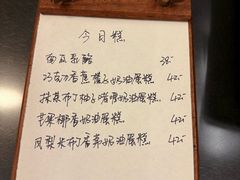 今日糕
南瓜乳酪 38-
巧克力香蕉榛子奶油蛋糕 42-
抹茶布丁柚子啫喱奶油蛋糕. 42-
芒果椰香奶油蛋糕. 42-
凤梨米布丁香草奶油蛋糕 42-